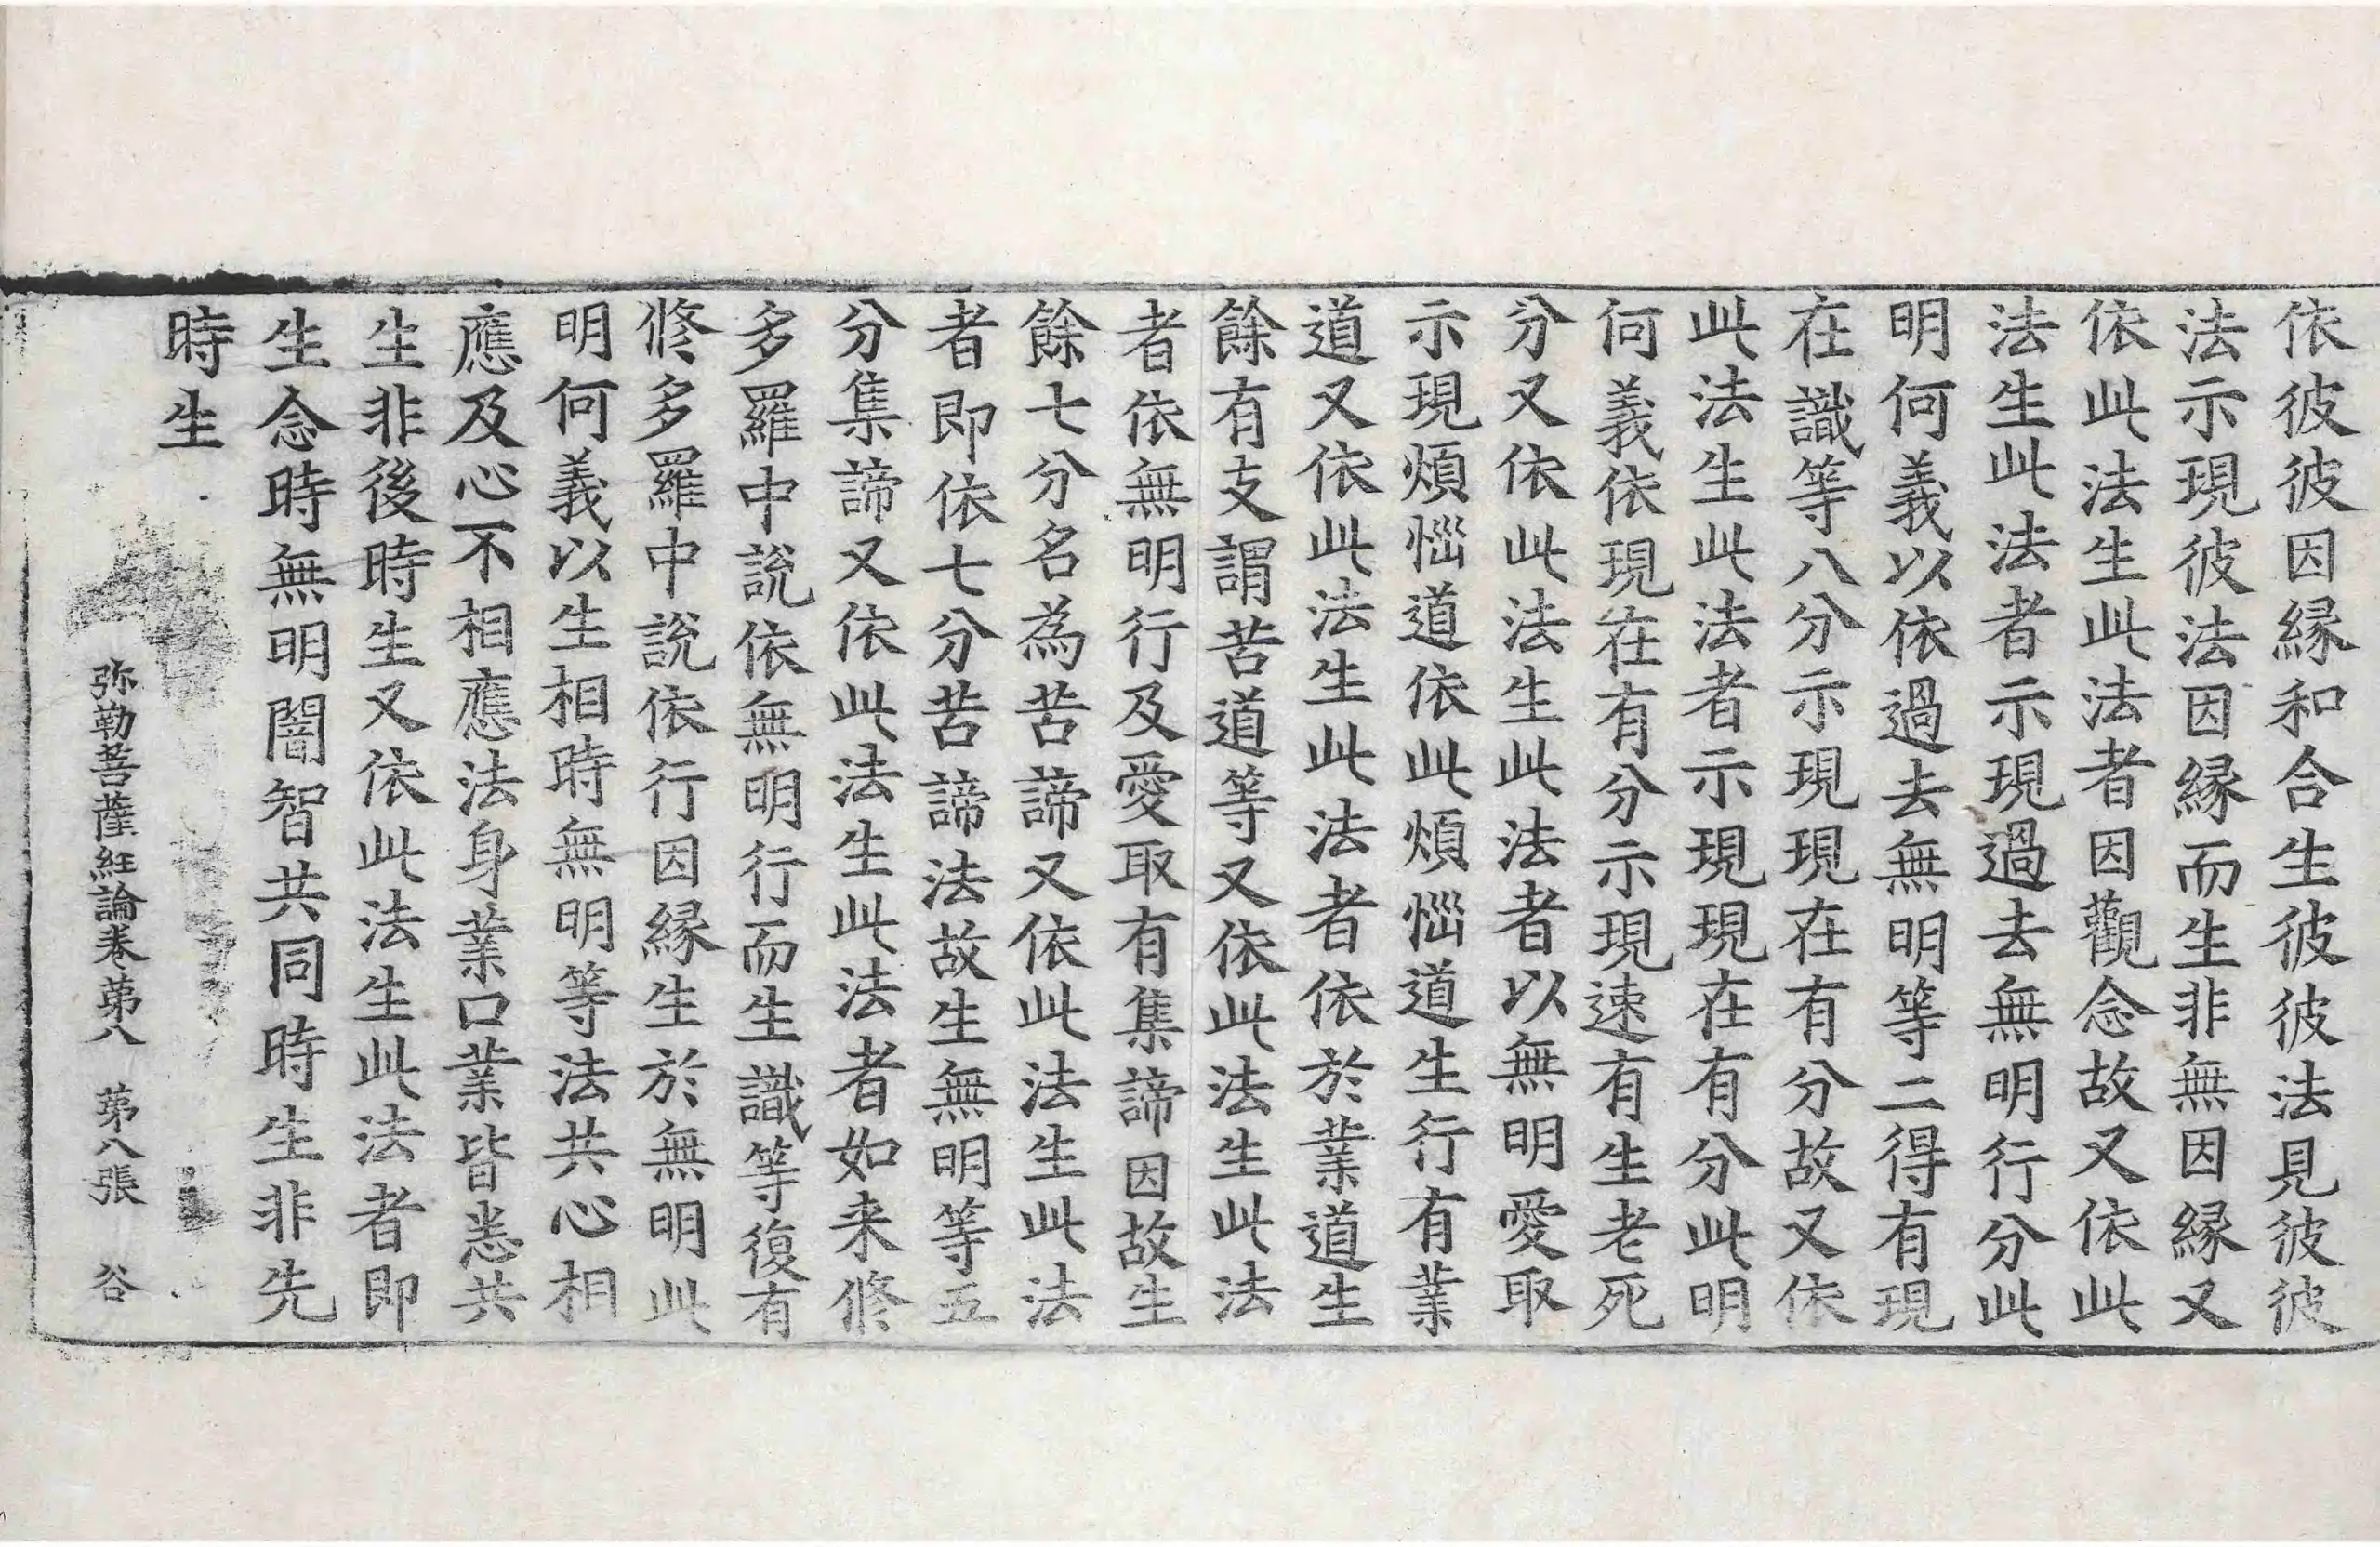 依彼彼因縁和合生彼彼法見彼彼
法示現彼法因縁而生非無因縁又
依此法生此法者因觀念故又依此
法生此法者示現過去無明行分此
明何義以依過去無明等二得有現
在識等八分示現現在有分故又依
此法生此法者示現現在有分此明
何義依現在有分示現速有生老死
分又依此法生此法者以無明愛取
示現煩惱道依此煩惱道生行有業
道又依此法生此法者依於業道生
餘有支謂苦道等又依此法生此法
者依無明行及愛取有集諦因故生
餘七分名為苦諦又依此法生此法
者即依七分苦諦法故生無明等五
分集諦又依此法生此法者如来修
多羅中說依無明行而生識等復有
修多羅中說依行因縁生於無明此
明何義以生相時無明等法共心相
應及心不相應法身業口業皆悉共
生非後時生又依此法生此法者即
生念時無明闇智共同時生非先
時生
弥勒菩薩経論卷苐八 苐八張 谷